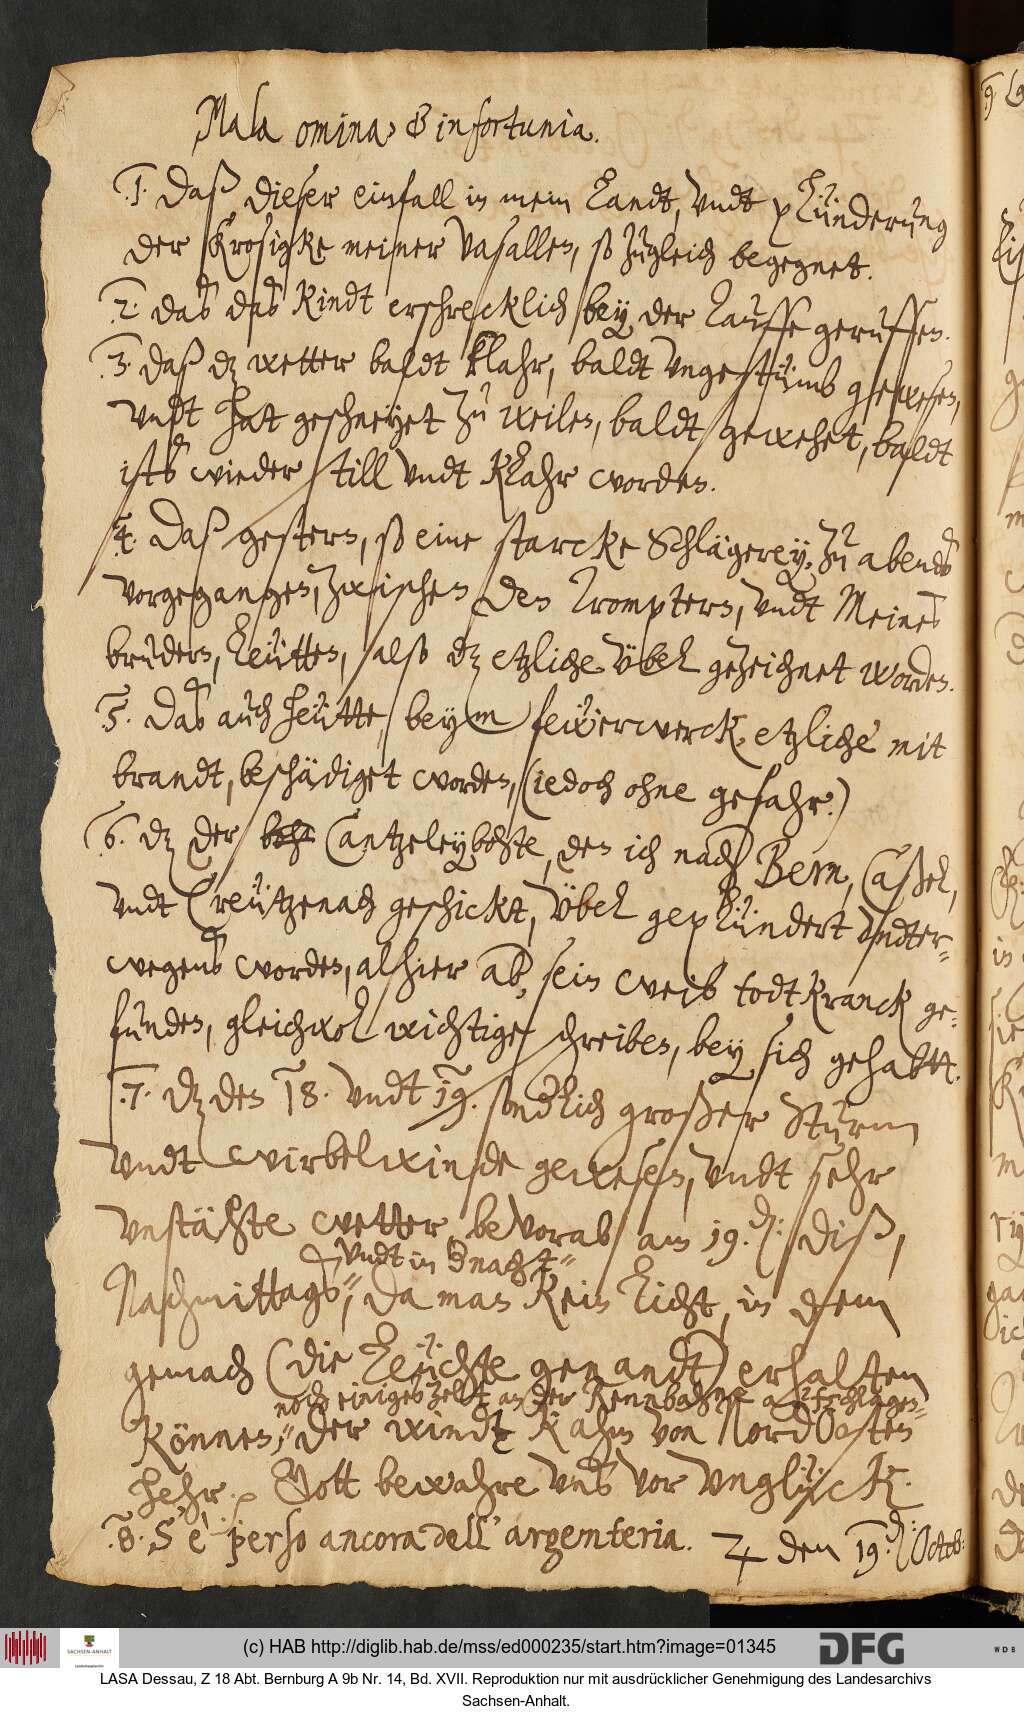 Mala omina & infortunia.
1. Daß dieser einfall in mein Landt, undt plünderung
der Krosigke meiner Vasallen, so zugleich begegnet.
2. das das Kindt erschrecklich bey der Tauffe geruffen.
3. daß dz wetter baldt klahr, baldt ungestüms gewesen,
undt hat geschneyet zu weilen, baldt gewehet, baldt
ists wieder still undt klahr worden.
4. Daß gestern, so eine starcke Schlägerey, zu abends
vorgegangen, zwischen den Trompetern, undt Meines
bruders, Leütten, also dz etzliche übel gezeichnet worden.
5. Das auch heütte, beym feüerwerck, etzliche mit
brandt, beschädiget worden, (iedoch ohne gefahr.)
6. dz der Cantzeleybohte, den ich nach Bern, Caßel,
undt Creützenach geschickt, übel geplündert undter-
wegens worden, alhier ab, sein weib todtkranck ge-
funden, gleichwol wichtige schreiben, bey sich gehabtt.
7. dz den 18. undt 19. sondlich großer Sturm
undt wirbelwinde gewesen, undt sehr
unstähte wetter, bevorab am 19. d: diß,
undt in der nacht
Nachmittags, da man kein Licht, in dem
gemach (die Leüchte genandt) erhalten
noch einiges zelt an der Rennbahne aufschlagen
können, der windt kahm von NordOosten
hehr. Gott bewahre uns vor unglück.
8. S'è perso ancora dell' argenteria. ♃ den 19. d: Octob:
(c) HAB http://diglib.hab.de/mss/ed000235/start.htm?image=01345
SACHSEN-ANHALT
DFG
WDB
LASA Dessau, Z 18 Abt. Bernburg A 9b Nr. 14, Bd. XVII. Reproduktion nur mit ausdrücklicher Genehmigung des Landesarchivs
Sachsen-Anhalt.